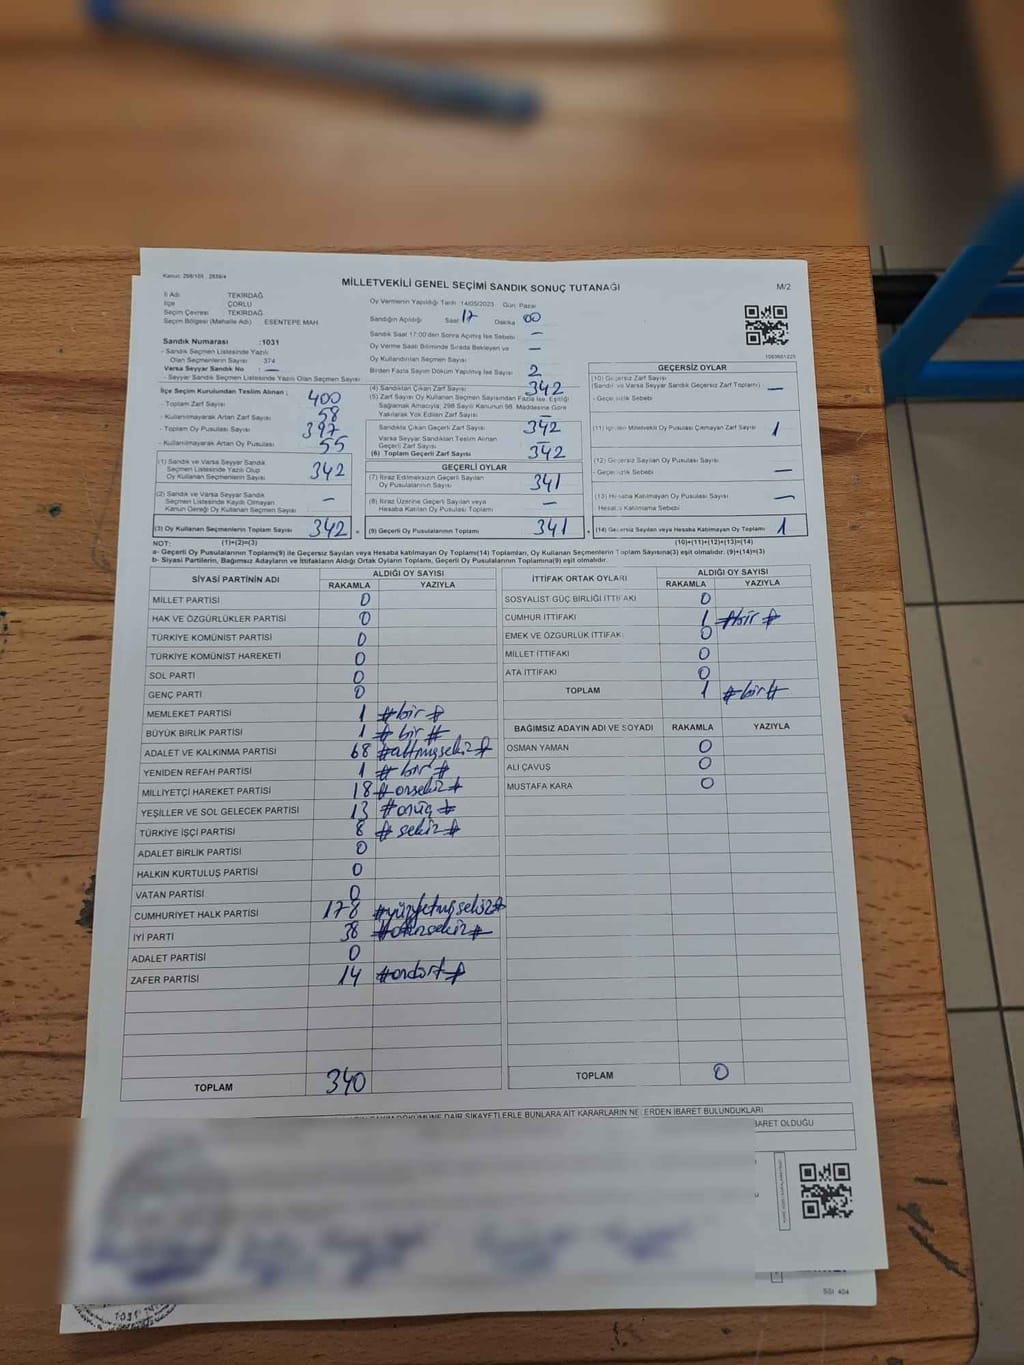 Kanun: 298/105 , 2839/4
MİLLETVEKİLİ GENEL SEÇİMİ SANDIK SONUÇ TUTANAĞI
M/2
İl Adı TEKİRDAĞ
İlçe ÇORLU
Seçim Çevresi TEKİRDAĞ
Seçim Bölgesi (Mahalle Adı) ESENTEPE MAH
Sandık Numarası :1031
- Sandık Seçmen Listesinde Yazılı
Olan Seçmenlerin Sayısı 374
Varsa Seyyar Sandık No : —
- Seyyar Sandık Seçmen Listesinde Yazılı Olan Seçmen Sayısı
Oy Vermenin Yapıldığı Tarih :14/05/2023 Gün: Pazar
Sandığın Açıldığı Saat 17 Dakika 00
Sandık Saat 17:00'den Sonra Açılmış İse Sebebi —
Oy Verme Saati Bitiminde Sırada Bekleyen ve —
Oy Kullandırılan Seçmen Sayısı
Birden Fazla Sayım Döküm Yapılmış İse Sayısı 2
İlçe Seçim Kurulundan Teslim Alınan ;
- Toplam Zarf Sayısı 400
- Kullanılmayarak Artan Zarf Sayısı 58
- Toplam Oy Pusulası Sayısı 397
- Kullanılmayarak Artan Oy Pusulası 55
(1) Sandık ve Varsa Seyyar Sandık
Seçmen Listesinde Yazılı Olup
Oy Kullanan Seçmenlerin Sayısı 342
(2) Sandık ve Varsa Seyyar Sandık
Seçmen Listesinde Kayıtlı Olmayan
Kanun Gereği Oy Kullanan Seçmen Sayısı —
(3) Oy Kullanan Seçmenlerin Toplam Sayısı 342 =
(4) Sandıktan Çıkan Zarf Sayısı 342
(5) Zarf Sayısı Oy Kullanan Seçmen Sayısından Fazla İse, Eşitliği
Sağlamak Amacıyla; 298 Sayılı Kanunun 98. Maddesine Göre
Yakılarak Yok Edilen Zarf Sayısı —
Sandıkta Çıkan Geçerli Zarf Sayısı 342
Varsa Seyyar Sandıktan Teslim Alınan
Geçerli Zarf Sayısı —
(6) Toplam Geçerli Zarf Sayısı 342
GEÇERLİ OYLAR
(7) İtiraz Edilmeksizin Geçerli Sayılan
Oy Pusulalarının Sayısı 341
(8) İtiraz Üzerine Geçerli Sayılan veya
Hesaba Katılan Oy Pusulası Toplamı —
(9) Geçerli Oy Pusulalarının Toplamı 341 +
1003681225
GEÇERSİZ OYLAR
(10) Geçersiz Zarf Sayısı
(Sandık ve Varsa Seyyar Sandık Geçersiz Zarf Toplamı) —
- Geçersizlik Sebebi
(11) İçinden Milletvekili Oy Pusulası Çıkmayan Zarf Sayısı 1
(12) Geçersiz Sayılan Oy Pusulası Sayısı
- Geçersizlik Sebebi —
(13) Hesaba Katılmayan Oy Pusulası Sayısı —
Hesaba Katılmama Sebebi
(14) Geçersiz Sayılan veya Hesaba Katılmayan Oy Toplamı 1
NOT: (1)+(2)=(3) (10)+(11)+(12)+(13)=(14)
a- Geçerli Oy Pusulalarının Toplamı(9) ile Geçersiz Sayılan veya Hesaba katılmayan Oy Toplamı(14) Toplamları, Oy Kullanan Seçmenlerin Toplam Sayısına(3) eşit olmalıdır. (9)+(14)=(3)
b- Siyasi Partilerin, Bağımsız Adayların ve İttifakların Aldığı Ortak Oyların Toplamı, Geçerli Oy Pusulalarının Toplamına(9) eşit olmalıdır.
SİYASİ PARTİNİN ADI ALDIĞI OY SAYISI
RAKAMLA YAZIYLA
MİLLET PARTİSİ 0
HAK VE ÖZGÜRLÜKLER PARTİSİ 0
TÜRKİYE KOMÜNİST PARTİSİ 0
TÜRKİYE KOMÜNİST HAREKETİ 0
SOL PARTİ 0
GENÇ PARTİ 0
MEMLEKET PARTİSİ 1 #bir#
BÜYÜK BİRLİK PARTİSİ 1 #bir#
ADALET VE KALKINMA PARTİSİ 68 #altmışsekiz#
YENİDEN REFAH PARTİSİ 1 #bir#
MİLLİYETÇİ HAREKET PARTİSİ 18 #onsekiz#
YEŞİLLER VE SOL GELECEK PARTİSİ 13 #onüç#
TÜRKİYE İŞÇİ PARTİSİ 8 #sekiz#
ADALET BİRLİK PARTİSİ 0
HALKIN KURTULUŞ PARTİSİ 0
VATAN PARTİSİ 0
CUMHURİYET HALK PARTİSİ 178 #yüzyetmişsekiz#
İYİ PARTİ 38 #otuzsekiz#
ADALET PARTİSİ 0
ZAFER PARTİSİ 14 #ondört#
TOPLAM 340
İTTİFAK ORTAK OYLARI ALDIĞI OY SAYISI
RAKAMLA YAZIYLA
SOSYALİST GÜÇ BİRLİĞİ İTTİFAKI 0
CUMHUR İTTİFAKI 1 #bir#
EMEK VE ÖZGÜRLÜK İTTİFAKI 0
MİLLET İTTİFAKI 0
ATA İTTİFAKI 0
TOPLAM 1 #bir#
BAĞIMSIZ ADAYIN ADI VE SOYADI RAKAMLA YAZIYLA
OSMAN YAMAN 0
ALİ ÇAVUŞ 0
MUSTAFA KARA 0
TOPLAM 0
DÖKÜMÜNE DAİR ŞİKAYETLERLE BUNLARA AİT KARARLARIN NELERDEN İBARET BULUNDUKLARI
İBARET OLDUĞU
SSI 404
1031